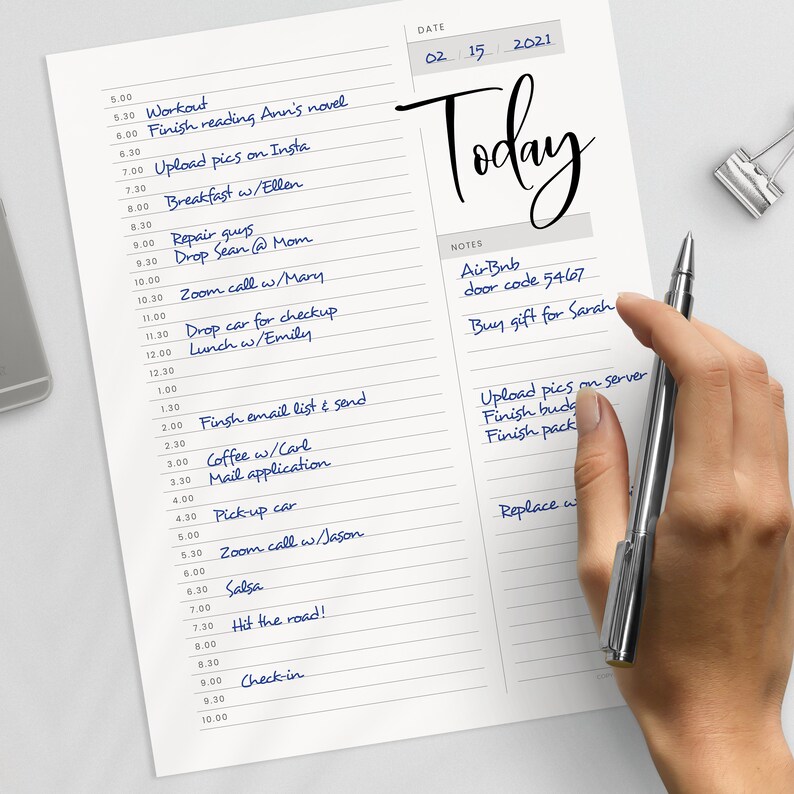 DATE
02 / 15 / 2021
Today
5.00
5.30 Workout
6.00 Finish reading Ann's novel
6.30
7.00 Upload pics on Insta
7.30
8.00 Breakfast w/Ellen
8.30
9.00 Repair guys
9.30 Drop Sean @ Mom
10.00
10.30 Zoom call w/Mary
11.00
11.30 Drop car for checkup
12.00 Lunch w/Emily
12.30
1.00
1.30
2.00 Finsh email list & send
2.30
3.00 Coffee w/Carl
3.30 Mail application
4.00
4.30 Pick-up car
5.00
5.30 Zoom call w/Jason
6.00
6.30 Salsa
7.00
7.30 Hit the road!
8.00
8.30
9.00 Check-in
9.30
10.00
NOTES
AirBnb
door code 5467
Buy gift for Sarah
Upload pics on server
Finish
Finish
Replace